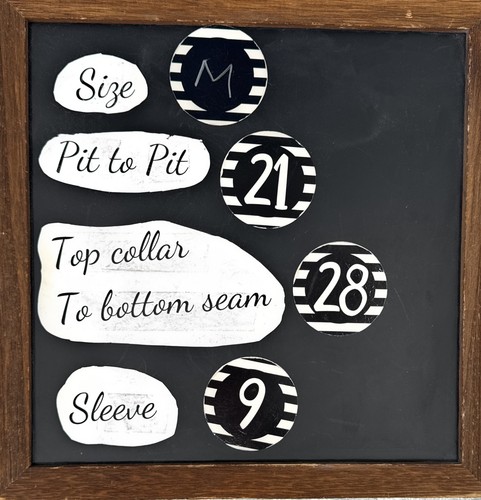 Size M
Pit to Pit 21
Top collar
To bottom seam 28
Sleeve 9